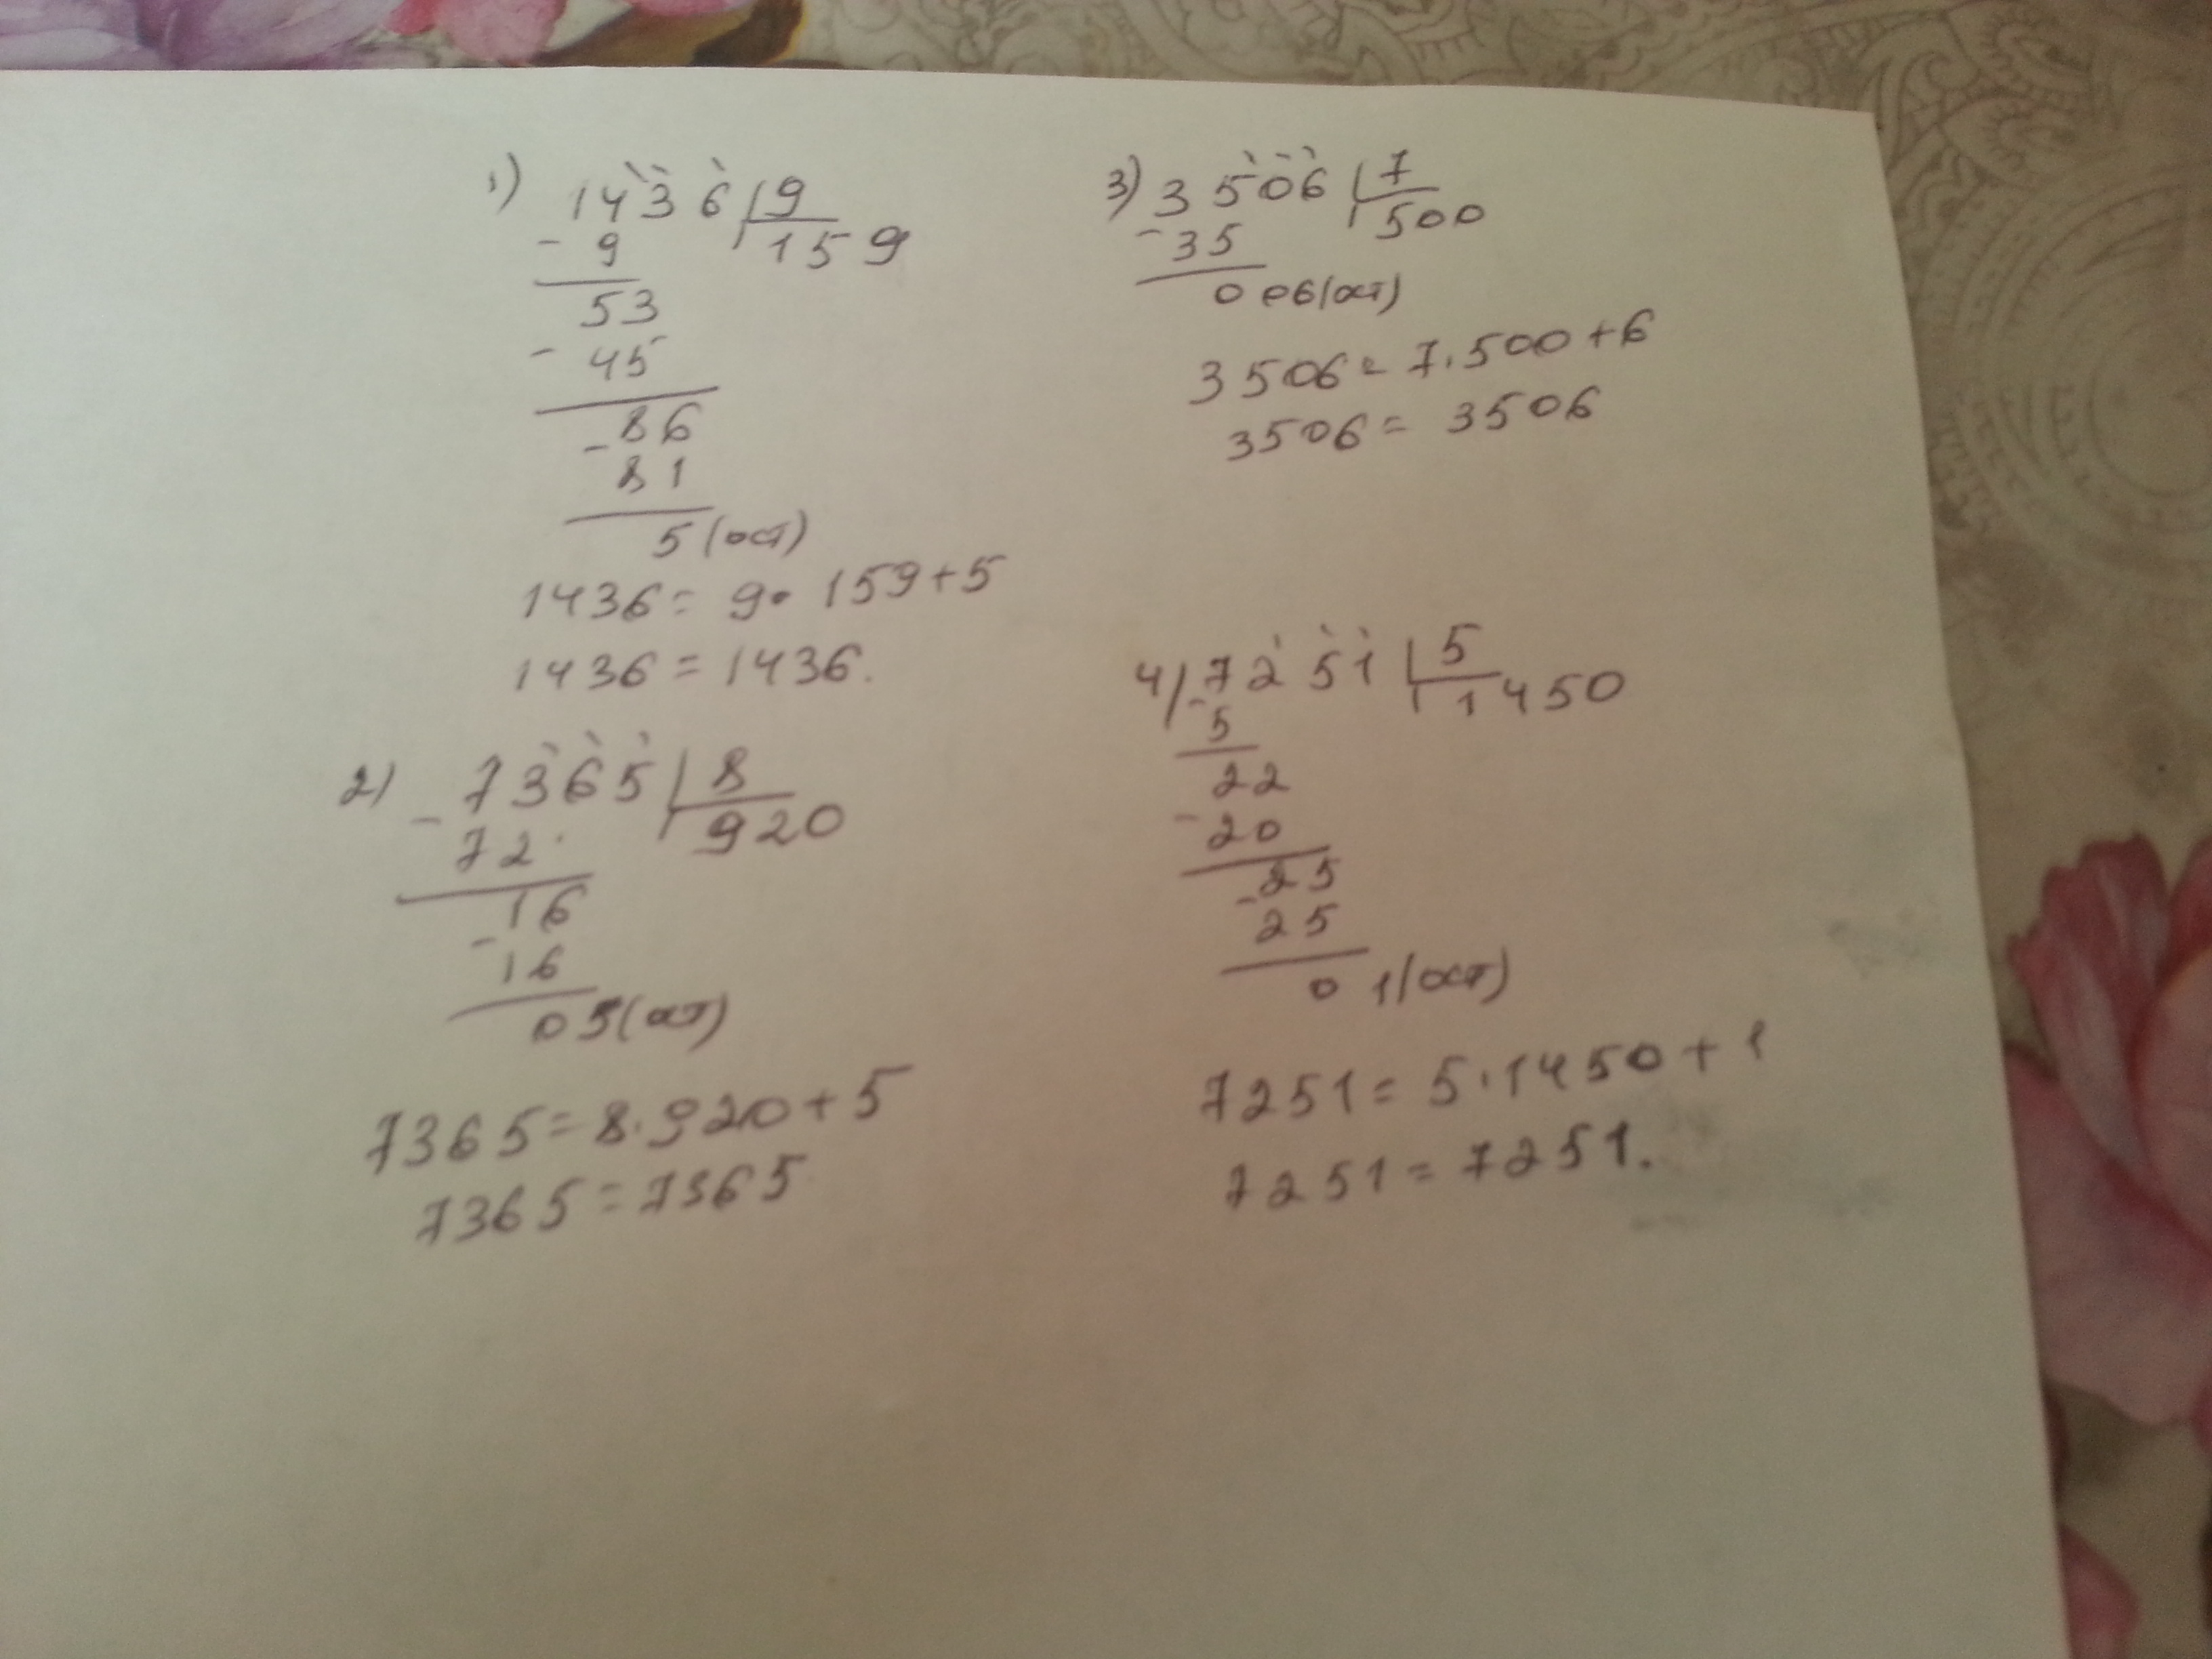 1) 1436 9
- 9 159
53
- 45
- 86
81
5 (ост)
1436 = 9 · 159 + 5
1436 = 1436.
2) - 7365 8
72 920
- 16
16
05 (ост)
7365 = 8 · 920 + 5
7365 = 7365
3) 3506 7
- 35 500
0 06 (ост)
3506 = 7 · 500 + 6
3506 = 3506
4) - 7251 5
5 1450
22
- 20
- 25
25
0 1 (ост)
7251 = 5 · 1450 + 1
7251 = 7251.